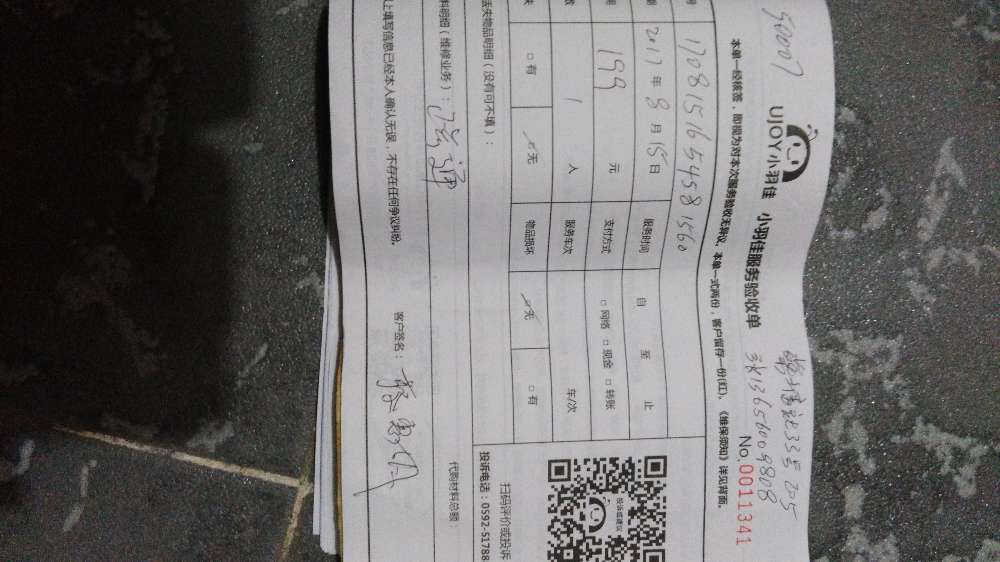 50007
UJOY小羽佳 小羽佳服务验收单
33号205
13656009808
No.0011341
本单一经核签，即视为对本次服务验收无异议。本单一式两份，客户留存一份(红)。《维保须知》详见背面。
号 170815654581560
期 2017年8月15日 服务时间 自 至 止
额 199 元 支付方式 □网络 □现金 □转账
数 1 人 服务车次 车/次
失 □有 ☑无 物品损坏 ☑无 □有
丢失物品明细（没有可不填）：
料明细（维修业务）：已疏通
代购材料总额：
上填写信息已经本人确认无误，不存在任何争议纠纷。
客户签名：
投诉或建议
扫码评价或投诉
投诉电话：0592-51788